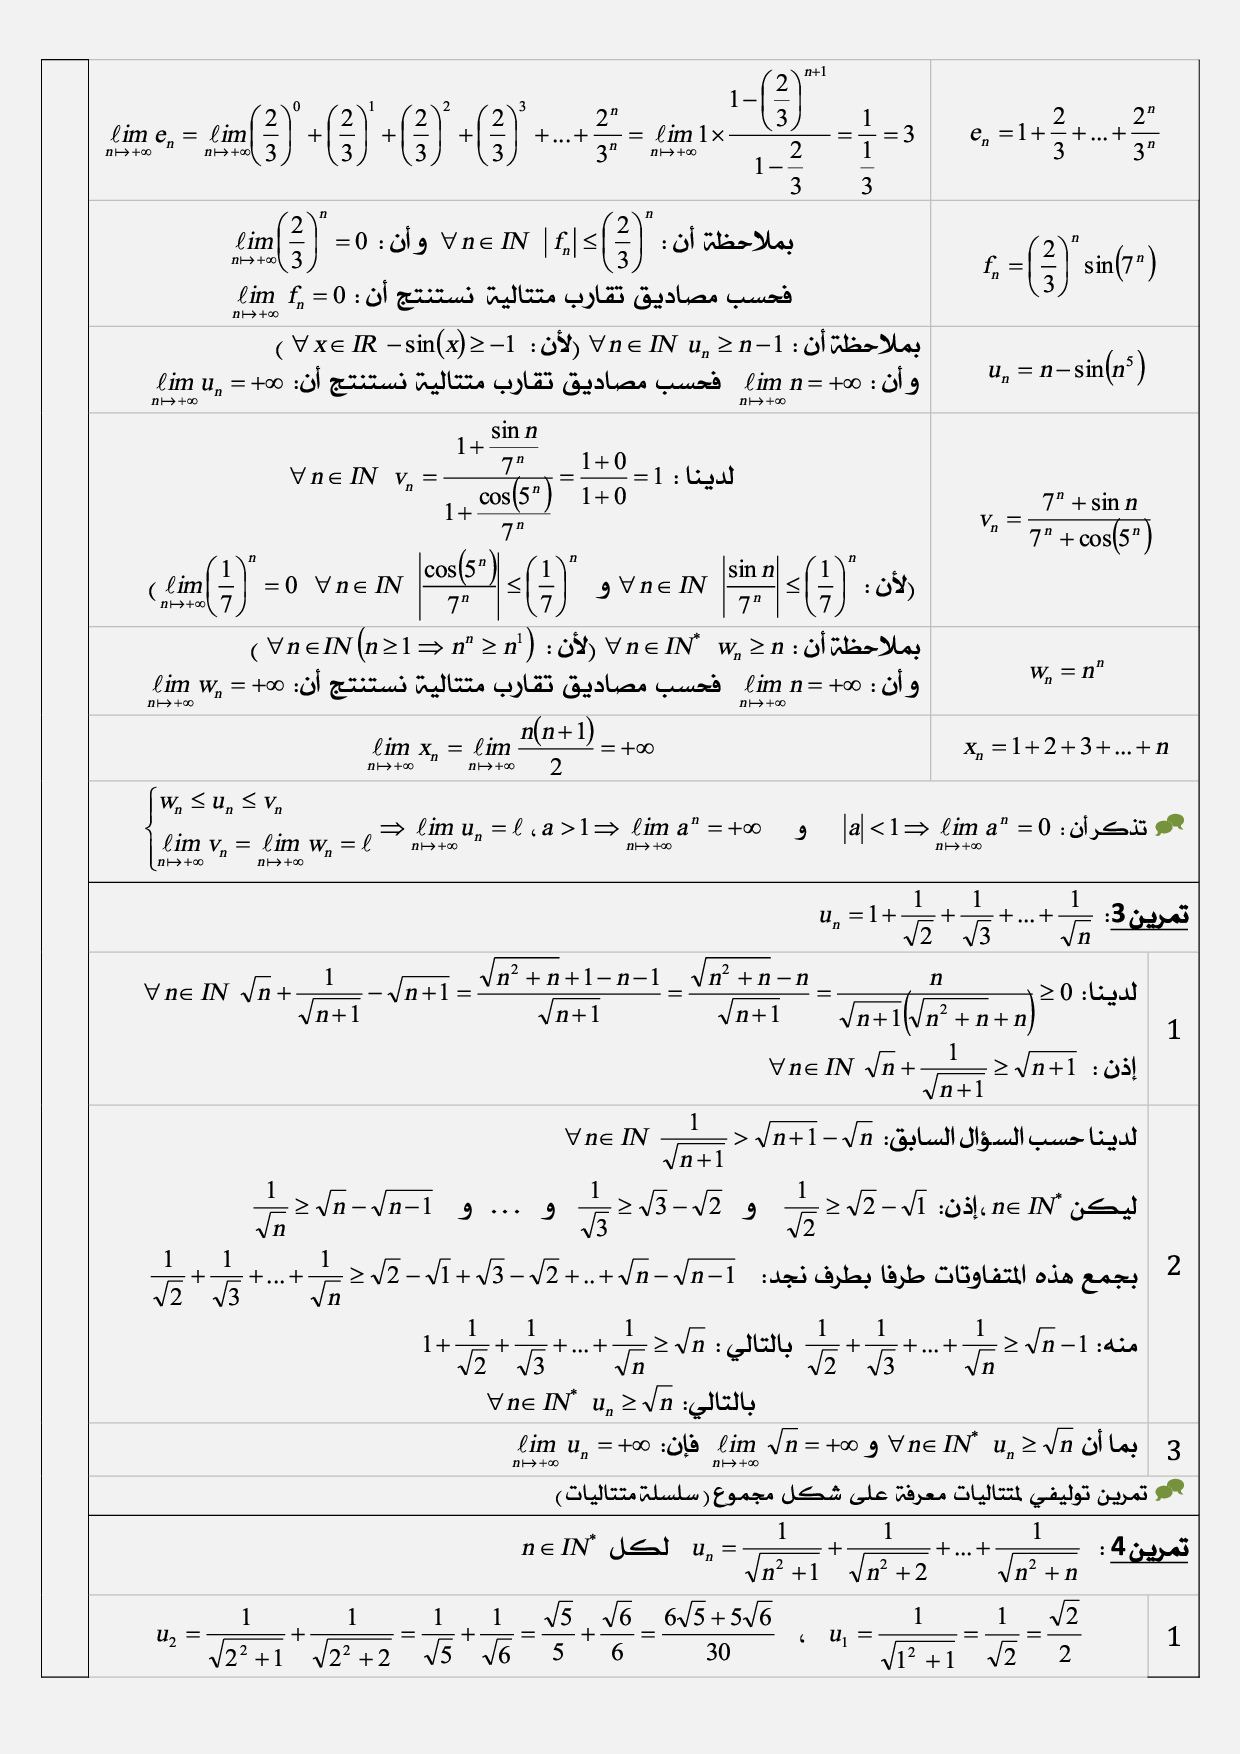 e_n = 1 + 2/3 + ... + 2^n/3^n
lim_{n↦+∞} e_n = lim_{n↦+∞} (2/3)^0 + (2/3)^1 + (2/3)^2 + (2/3)^3 + ... + 2^n/3^n = lim_{n↦+∞} 1 × (1 − (2/3)^{n+1})/(1 − 2/3) = 1/(1/3) = 3
f_n = (2/3)^n sin(7^n)
بملاحظة أن : ∀n∈IN |f_n| ≤ (2/3)^n وأن : lim_{n↦+∞} (2/3)^n = 0
فحسب مصاديق تقارب متتالية نستنتج أن : lim_{n↦+∞} f_n = 0
u_n = n − sin(n^5)
بملاحظة أن : ∀n∈IN u_n ≥ n−1 (لأن : ∀x∈IR −sin(x) ≥ −1 )
وأن : lim_{n↦+∞} n = +∞ فحسب مصاديق تقارب متتالية نستنتج أن: lim_{n↦+∞} u_n = +∞
v_n = (7^n + sin n)/(7^n + cos(5^n))
لدينا : ∀n∈IN v_n = (1 + sin n/7^n)/(1 + cos(5^n)/7^n) = (1+0)/(1+0) = 1
(لأن : ∀n∈IN |sin n/7^n| ≤ (1/7)^n و ∀n∈IN |cos(5^n)/7^n| ≤ (1/7)^n lim_{n↦+∞} (1/7)^n = 0 )
w_n = n^n
بملاحظة أن : ∀n∈IN* w_n ≥ n (لأن : ∀n∈IN (n ≥ 1 ⇒ n^n ≥ n^1) )
وأن : lim_{n↦+∞} n = +∞ فحسب مصاديق تقارب متتالية نستنتج أن: lim_{n↦+∞} w_n = +∞
x_n = 1+2+3+...+n
lim_{n↦+∞} x_n = lim_{n↦+∞} n(n+1)/2 = +∞
تذكر أن : |a| < 1 ⇒ lim_{n↦+∞} a^n = 0 و a > 1 ⇒ lim_{n↦+∞} a^n = +∞ ، { w_n ≤ u_n ≤ v_n ; lim_{n↦+∞} v_n = lim_{n↦+∞} w_n = ℓ ⇒ lim_{n↦+∞} u_n = ℓ
تمرين3: u_n = 1 + 1/√2 + 1/√3 + ... + 1/√n
1
لدينا: ∀n∈IN √n + 1/√(n+1) − √(n+1) = (√(n²+n) + 1 − n − 1)/√(n+1) = (√(n²+n) − n)/√(n+1) = n/(√(n+1)(√(n²+n) + n)) ≥ 0
إذن : ∀n∈IN √n + 1/√(n+1) ≥ √(n+1)
2
لدينا حسب السؤال السابق: ∀n∈IN 1/√(n+1) > √(n+1) − √n
ليكن n∈IN* ،إذن: 1/√2 ≥ √2 − √1 و 1/√3 ≥ √3 − √2 و ... و 1/√n ≥ √n − √(n−1)
بجمع هذه المتفاوتات طرفا بطرف نجد: 1/√2 + 1/√3 + ... + 1/√n ≥ √2 − √1 + √3 − √2 + .. + √n − √(n−1)
منه: 1/√2 + 1/√3 + ... + 1/√n ≥ √n − 1 بالتالي : 1 + 1/√2 + 1/√3 + ... + 1/√n ≥ √n
بالتالي: ∀n∈IN* u_n ≥ √n
3
بما أن ∀n∈IN* u_n ≥ √n و lim_{n↦+∞} √n = +∞ فإن: lim_{n↦+∞} u_n = +∞
تمرين توليفي لمتتاليات معرفة على شكل مجموع(سلسلة متتاليات)
تمرين4 : u_n = 1/√(n²+1) + 1/√(n²+2) + ... + 1/√(n²+n) لكل n∈IN*
1
u_1 = 1/√(1²+1) = 1/√2 = √2/2 ، u_2 = 1/√(2²+1) + 1/√(2²+2) = 1/√5 + 1/√6 = √5/5 + √6/6 = (6√5+5√6)/30